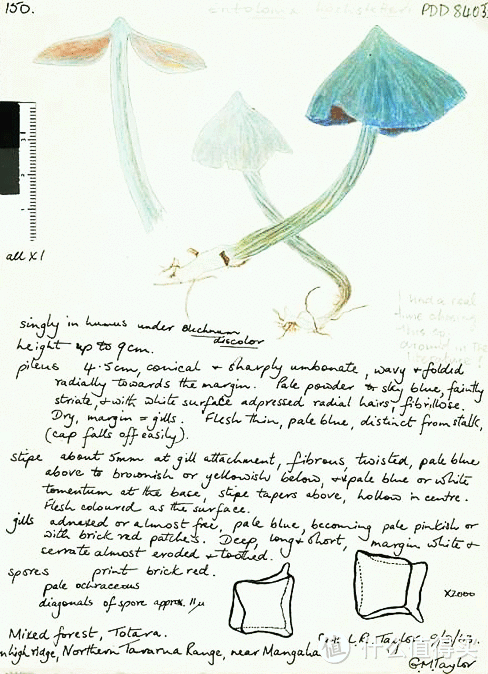 150.
entoloma hochstetteri
PDD 8403
all x1
I had a real
time chasing
this so
around in the
singly in humus under Blechnum
discolor
height up to 9cm.
pileus 4·5cm, conical & sharply umbonate, wavy & folded
radially towards the margin. Pale powder to sky blue, faintly
striate, & with white surface adpressed radial hairs, fibrillose.
Dry, margin = gills. Flesh thin, pale blue, distinct from stalk,
(cap falls off easily).
stipe about 5mm at gill attachment, fibrous, twisted, pale blue
above to brownish or yellowish below, & pale blue or white
tomentum at the base, stipe tapers above, hollow in centre.
Flesh coloured as the surface.
gills adnexed or almost free, pale blue, becoming pale pinkish or
with brick red patches. Deep, long & short, margin white &
serrate almost eroded & toothed.
spores print brick red.
pale ochraceous
diagonals of spore approx. 11µ
x2000
Mixed forest, Totara.
on high ridge, Northern Tararua Range, near Mangaha
L.R. Taylor
G.M Taylor
值 什么值得买